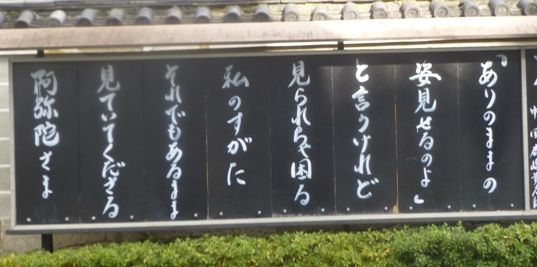 「ありのままの
姿見せるのよ」
と言うけれど
見られちゃ困る
私のすがた
それでもあるまま
見ていてくださる
阿弥陀さま